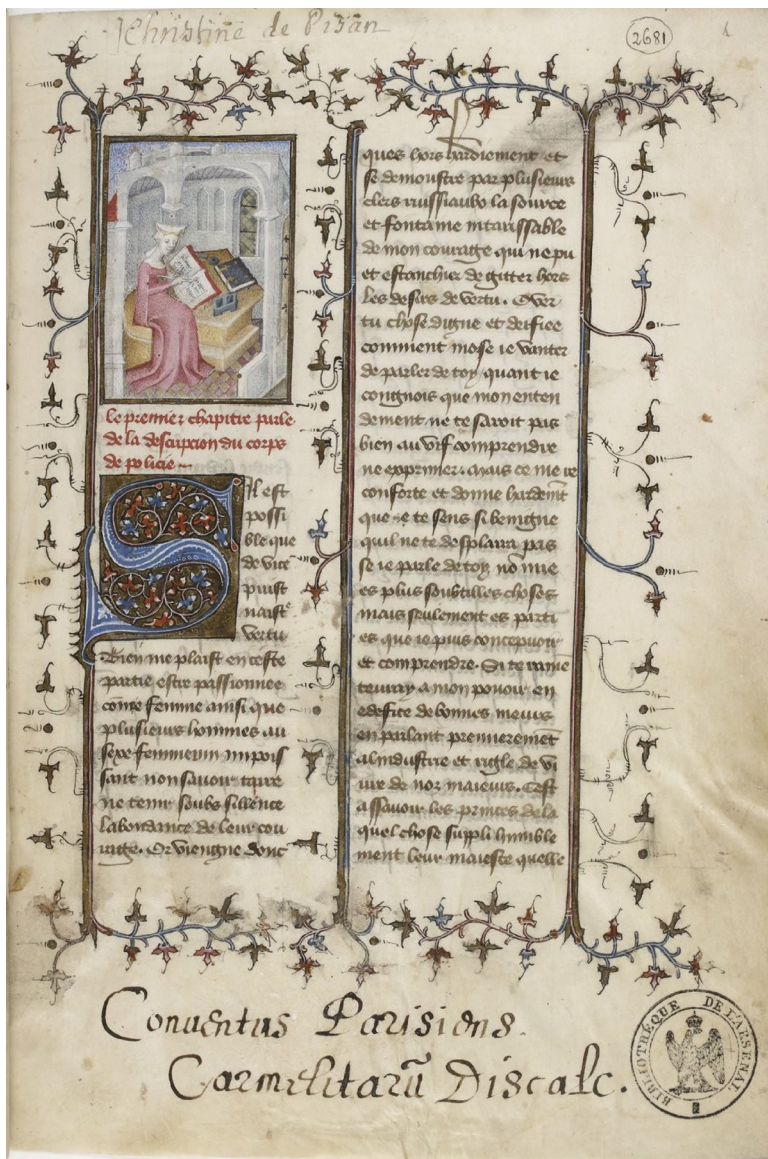 Christine de Pisan
2681
1
le premier chapitre parle
de la descripcion du corps
de policie
S'il est
possi
ble que
de vice
puist
naistre
vertu
Bien me plaist en ceste
partie estre passionnee
come femme ainsi que
plusieurs hommes au
sexe femmenin impois
sant non savoir taire
ne tenir soubs sillence
labondance de leur cou
rage. Or viengne donc
ques hors hardiement et
se demoustre par plusieurs
clers ruissiaulx la source
et fontaine intarissable
de mon courage qui ne pu
et estanchier de gitter hors
les desirs de vertu. O ver
tu chose digne et deifiee
comment mose ie vanter
de parler de toy quant ie
congnois que mon enten
dement ne te saroit pas
bien au vif comprendre
ne exprimer. mais ce me re
conforte et donne hardemt
que ie te sens si benigne
quil ne te desplaira pas
se ie parle de toy no mie
es plus soubtilles choses
mais seulement es parti
es que ie puis concepvoir
et comprendre. Si te rame
tevray a mon povoir en
edefice de bonnes meurs
en parlant premieremet
a lindustrie et rigle de vi
vre de noz maieurs. Cest
assavoir les princes de la
quel chose suppli humble
ment leur maieste quelle
Conventus Parisiens.
Carmelitarū Discalc.
BIBLIOTHÉQUE DE L'ARSENAL